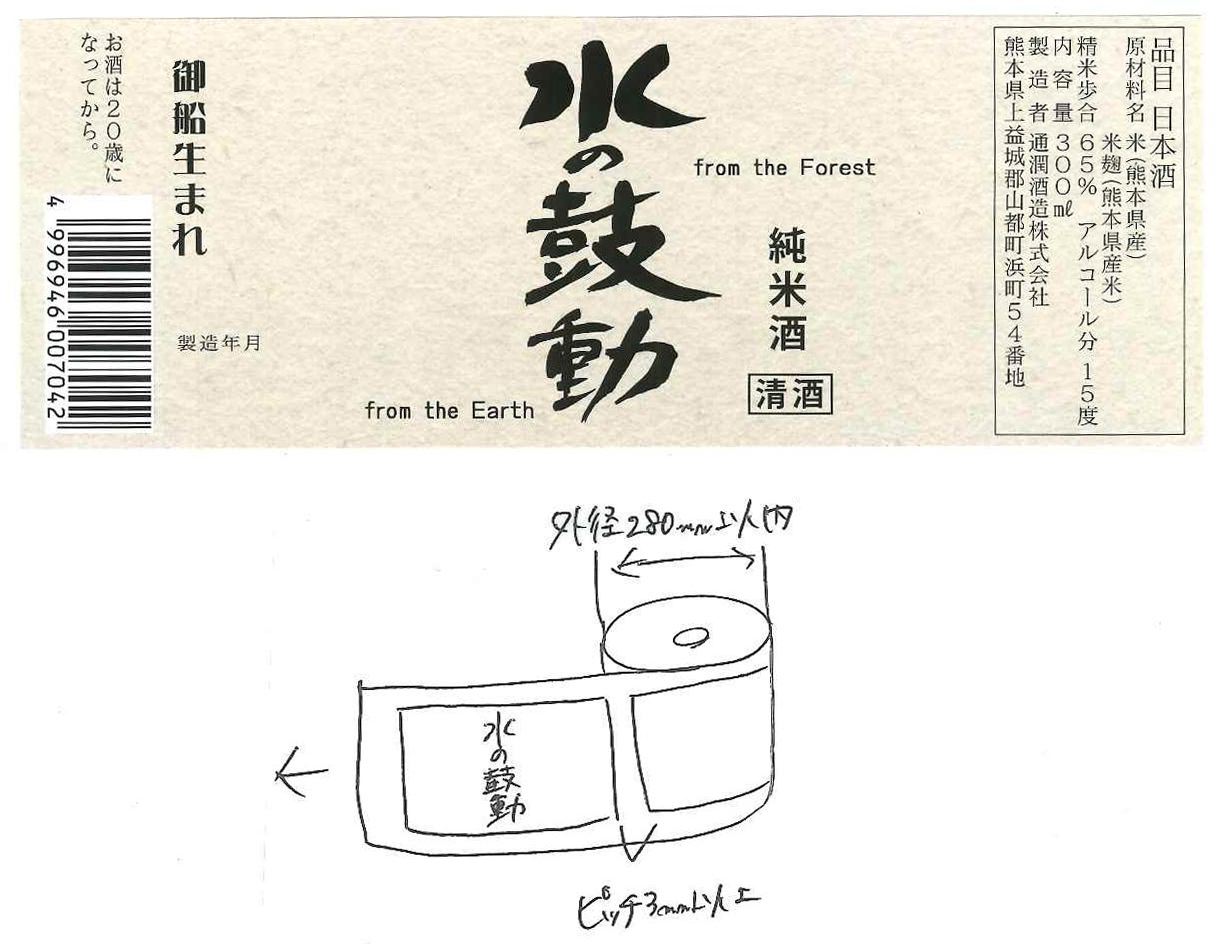 品目 日本酒
原材料名 米(熊本県産)
米麹(熊本県産米)
精米歩合 65% アルコール分 15度
内容量 300㎖
製造者 通潤酒造株式会社
熊本県上益城郡山都町浜町54番地
from the Forest
純米酒
清酒
水の鼓動
from the Earth
御船生まれ
製造年月
お酒は20歳に
なってから。
4 996946 007042
外径280mm以内
水の鼓動
ピッチ3mm以上